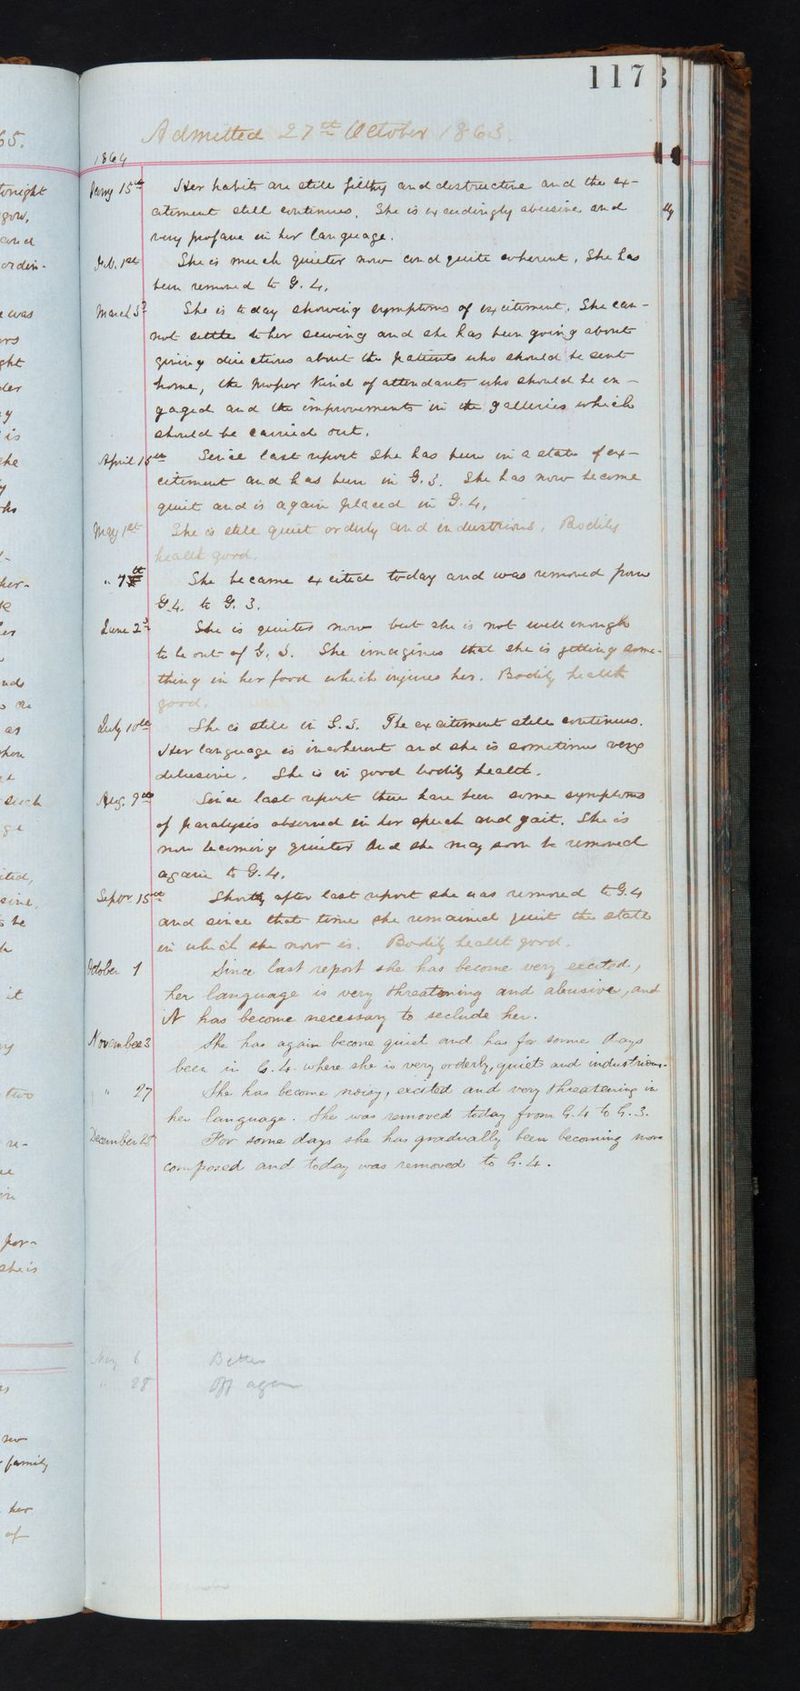 117
Admitted 27th October 1863.
1864
Jany 15th Her habits are still filthy and destructive and the ex-
citement still continues. She is exceedingly abusive and
very profane in her language.
Feb. 1st She is much quieter now and quite coherent. She has
been removed to G. 4.
March 3d She is today showing symptoms of excitement. She can-
not settle to her sewing and she has been going about
giving directions about the patients who should be sent
home, the proper kind of attendants who should be en-
gaged and the improvements in the galleries which
should be carried out.
April 15th Since last report she has been in a state of ex-
citement and has been in G. 3. She has now become
quiet and is again placed in G. 4.
May 1st She is still quiet orderly and industrious. Bodily
health good.
" 7th She became excited today and was removed from
G. 4. to G. 3.
June 2d She is quieter now but she is not well enough
to be out of G. 3. She imagines that she is getting some-
thing in her food which injures her. Bodily health
good.
July 10th She is still in G. 3. The excitement still continues.
Her language is incoherent and she is sometimes very
delusive. She is in good bodily health.
Aug. 9th Since last report there have been some symptoms
of paralysis observed in her speech and gait. She is
now becoming quieter and she may soon be removed
again to G. 4.
Septbr 15th Shortly after last report she was removed to G. 4
and since that time she remained quiet the state
in which she now is. Bodily health good.
October 1 Since last report she has become very excited,
her language is very threatening and abusive, and
it has become necessary to seclude her.
November 3 She has again become quiet and has for some days
been in G. 4. where she is very orderly, quiet and industrious.
" 27 She has become noisy, excited and very threatening in
her language. She was removed today from G. 4 to G. 3.
December 25 For some days she has gradually been becoming more
composed and today was removed to G. 4.
May 6 Better
" 28 Off again